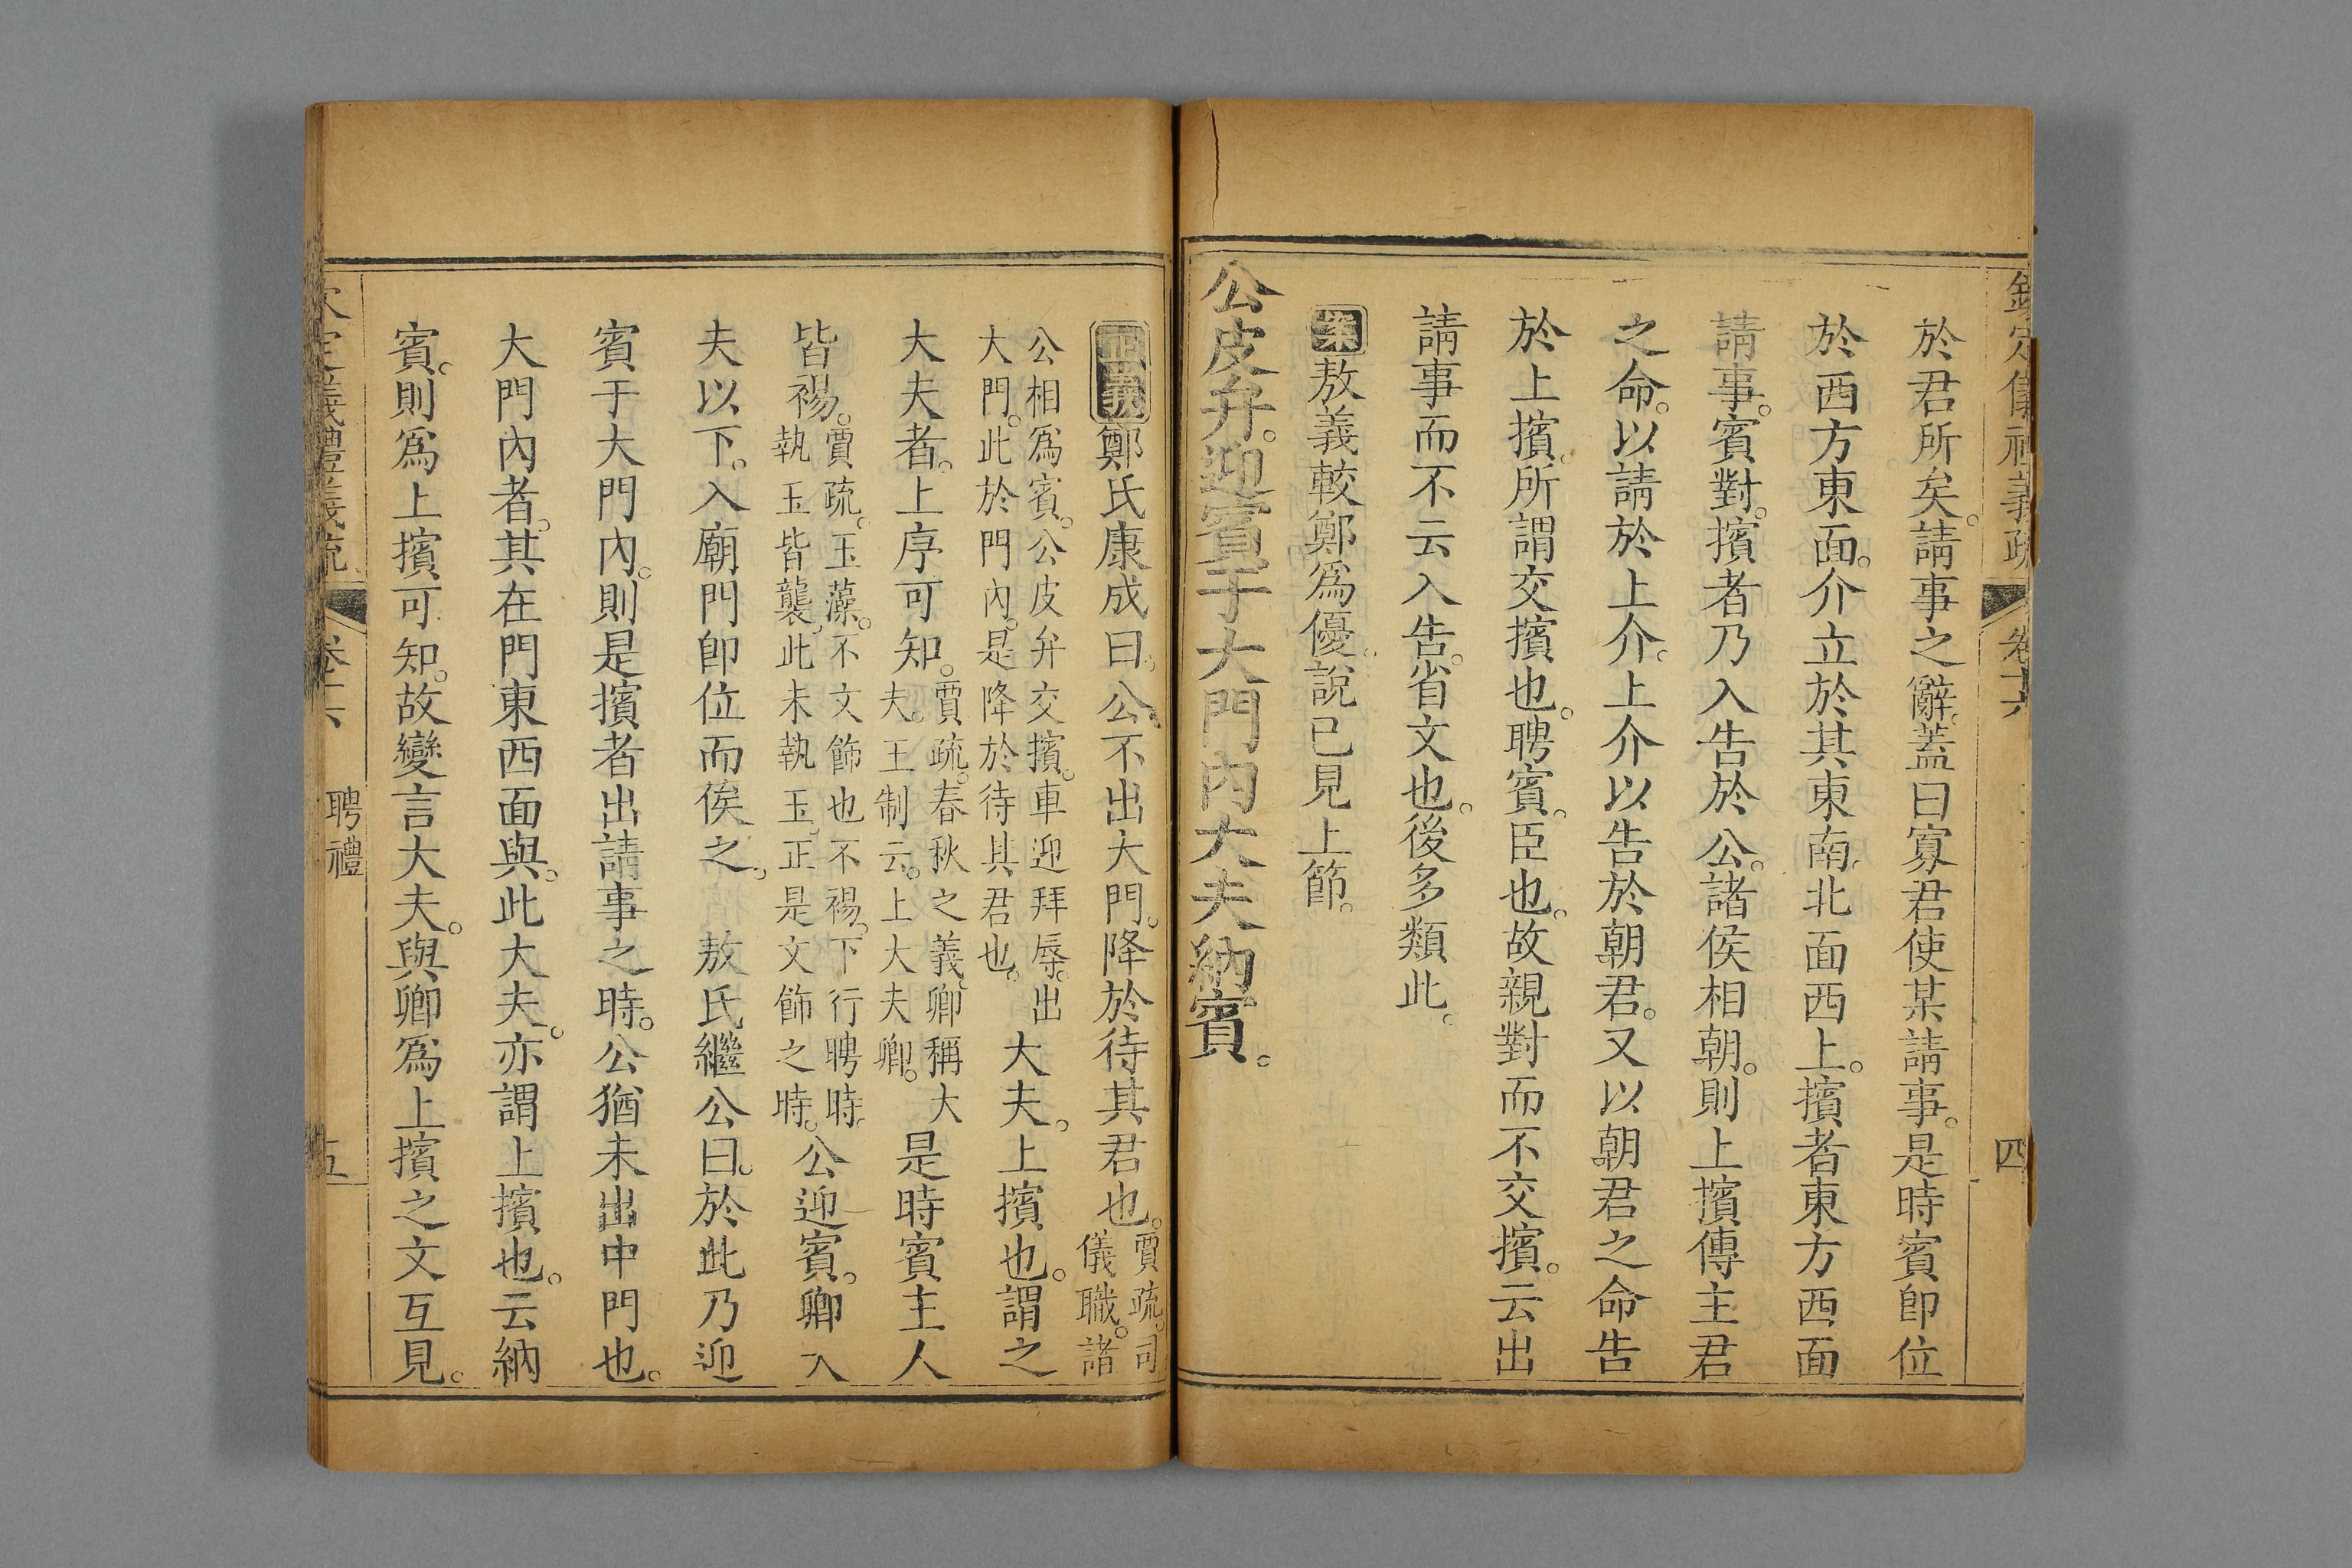 欽定儀禮義疏 卷十六 四
於君所矣。請事之辭。蓋曰寡君使某請事。是時賓即位
於西方東面。介立於其東南。北面西上。擯者東方西面
請事。賓對。擯者乃入告於公。諸侯相朝。則上擯傳主君
之命。以請於上介。上介以告於朝君。又以朝君之命告
於上擯。所謂交擯也。聘賓。臣也。故親對而不交擯。云出
請事而不云入告。省文也。後多類此。
案敖義較鄭為優。說已見上節。
公皮弁。迎賓于大門內。大夫納賓。
正義鄭氏康成曰。公不出大門。降於待其君也。賈疏。司
儀職。諸
公相為賓。公皮弁交擯。車迎拜辱。出
大門。此於門內。是降於待其君也。大夫。上擯也。謂之
大夫者。上序可知。賈疏。春秋之義。卿稱大
夫。王制云。上大夫卿。是時賓主人
皆裼。賈疏。玉藻。不文飾也不裼。下行聘時。
執玉皆襲。此未執玉。正是文飾之時。公迎賓。卿入
夫以下。入廟門即位而俟之。敖氏繼公曰。於此乃迎
賓于大門內。則是擯者出請事之時。公猶未出中門也。
大門內者。其在門東西面與。此大夫。亦謂上擯也。云納
賓。則為上擯可知。故變言大夫。與卿為上擯之文互見。
欽定儀禮義疏 卷十六 聘禮 五